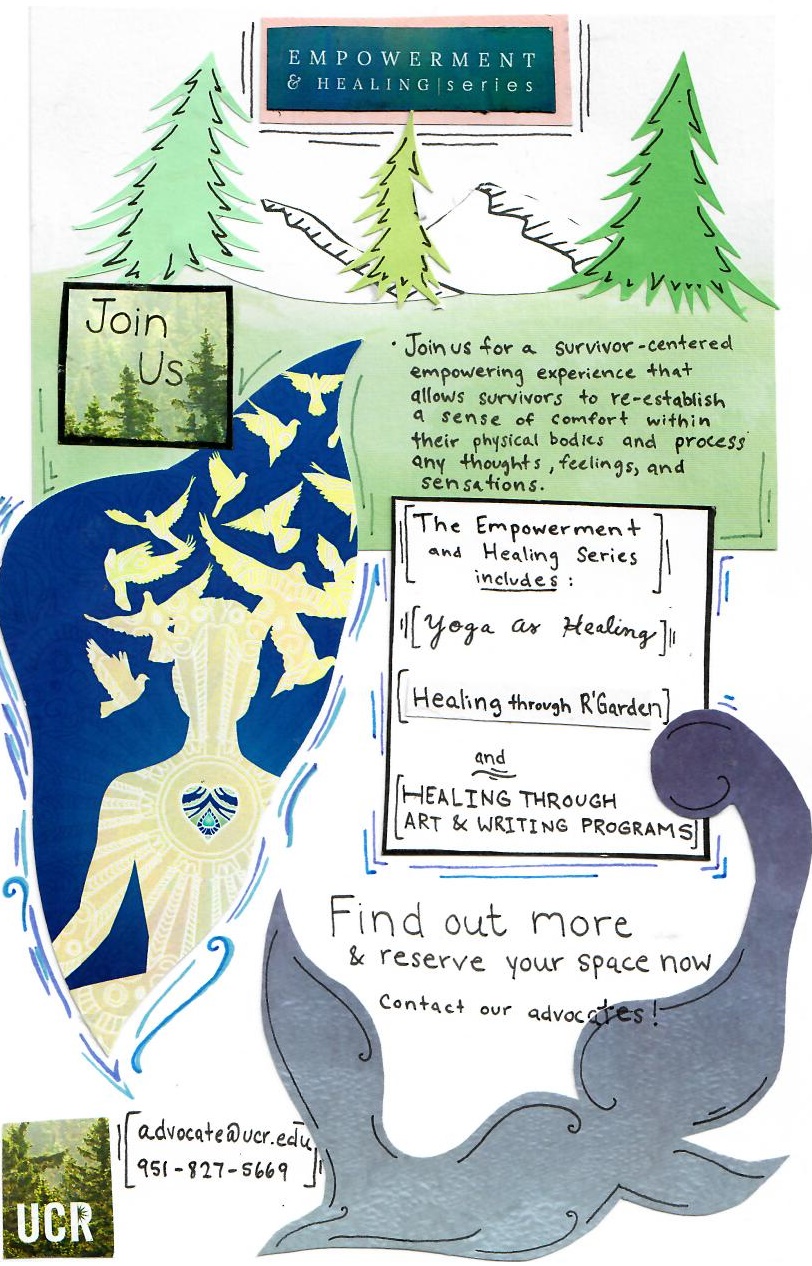 EMPOWERMENT
& HEALING|series
Join
Us
• Join us for a survivor-centered
empowering experience that
allows survivors to re-establish
a sense of comfort within
their physical bodies and process
any thoughts, feelings, and
sensations.
[The Empowerment
and Healing Series
includes:]
[Yoga as Healing]
[Healing through R'Garden]
and
[HEALING THROUGH
ART & WRITING PROGRAMS]
Find out more
& reserve your space now
Contact our advocates!
[advocate@ucr.edu
951-827-5669]
UCR